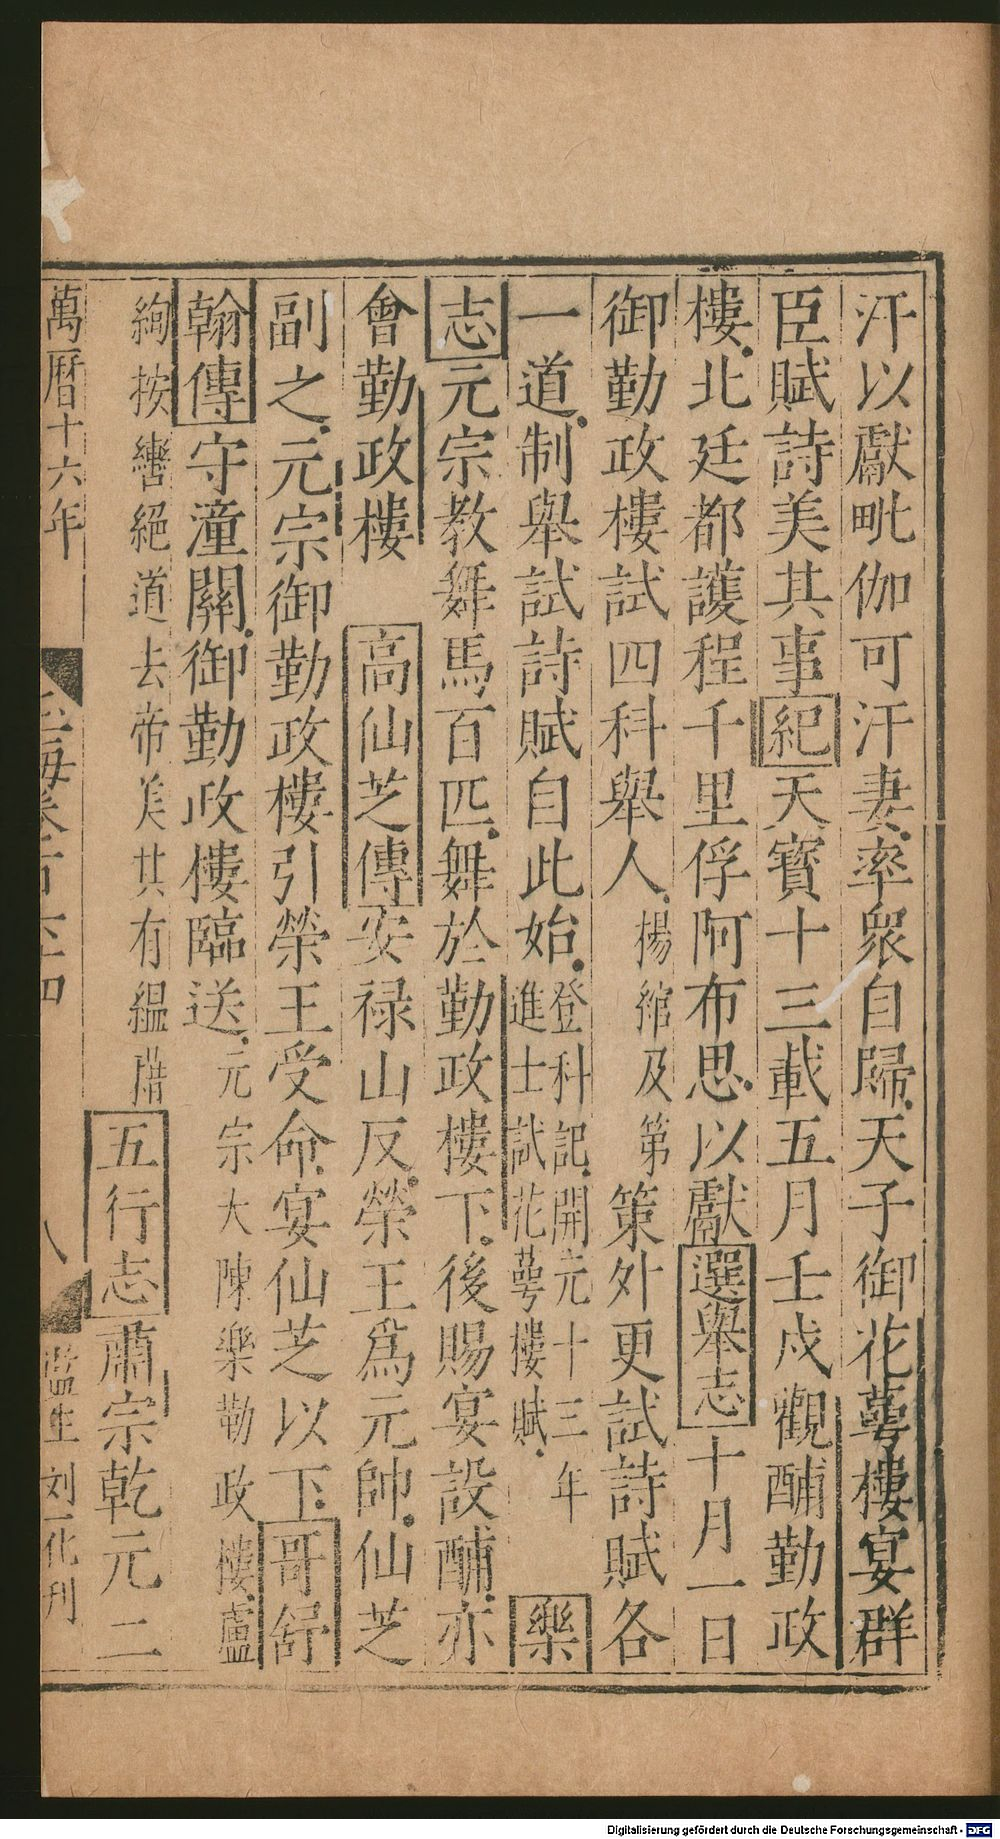 汗以獻毗伽可汗妻率衆自歸天子御花萼樓宴群
臣賦詩美其事紀天寶十三載五月壬戌觀酺勤政
樓北廷都護程千里俘阿布思以獻選舉志十月一日
御勤政樓試四科舉人楊綰及第策外更試詩賦各
一道制舉試詩賦自此始登科記開元十三年進士試花萼樓賦樂
志元宗教舞馬百匹舞於勤政樓下後賜宴設酺亦
會勤政樓 高仙芝傳安禄山反榮王爲元帥仙芝
副之元宗御勤政樓引榮王受命宴仙芝以下哥舒
翰傳守潼關御勤政樓臨送元宗大陳樂勤政樓盧
絢按轡絕道去帝美其有緼藉五行志肅宗乾元二
萬曆十六年 玉海卷百六十四 八 監生刘一化刊
Digitalisierung gefördert durch die Deutsche Forschungsgemeinschaft - DFG